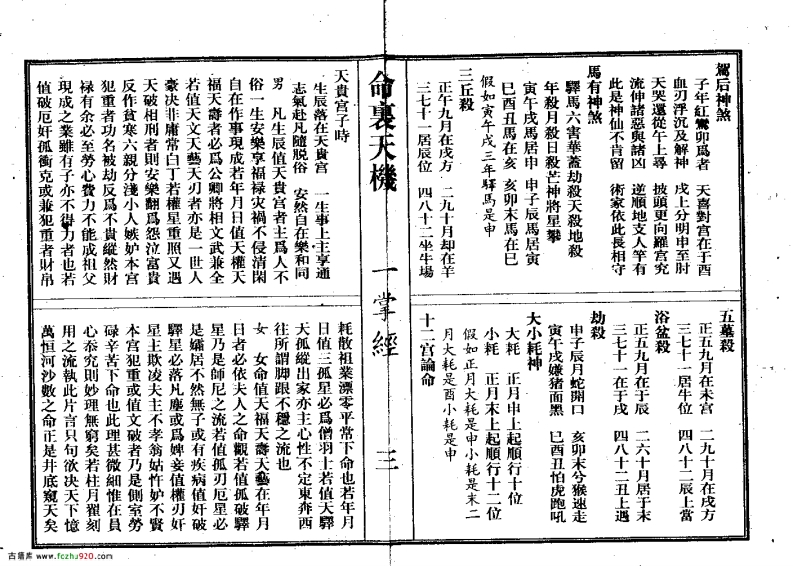 駕后神煞
子年紅鸞卯爲者 天喜對宫在于酉
血刃浮沉及解神 戌上分明申至肘
天哭還從午上尋 披頭更向羅宫究
流伸諸惡與諸凶 逆順地支人竿有
此是神仙不肯留 術家依此長相守
馬有神煞
驛馬六害華蓋劫殺天殺地殺
年殺月殺日殺芒神將星攀
寅午戌馬居申 申子辰馬居寅
巳酉丑馬在亥 亥卯未馬在巳
假如寅午戌三年驛馬是申
三丘殺
正午九月在戌方 二九十月却在羊
三七十一居辰位 四八十二坐牛場
五墓殺
正五九月在未宫 二九十月在戌方
三七十一居牛位 四八十二辰上當
浴盆殺
正五九月在于辰 二六十月居于未
三七十一在于戌 四八十二丑上遇
劫殺
申子辰月蛇開口 亥卯未兮猴速走
寅午戌嫌猪面黑 巳酉丑怕虎跑吼
大小耗神
大耗 正月申上起順行十位
小耗 正月未上起順行十二位
假如正月大耗是申小耗是未二
月大耗是酉小耗是申
十二宫論命
命裏天機 一掌經 三
天貴宫子時
生辰落在天貴宫 一生事上主享通
志氣赴凡隨脱俗 安然自在樂和同
男 凡生辰值天貴宫者主爲人不
俗一生安樂享福禄灾禍不侵清閑
自在作事現成若年月日值天權天
福天壽者必爲公卿將相文武兼全
若值天文天藝天刃者亦是一世人
豪决非庸常白丁若權星重照又遇
天破相刑者則安樂翻爲怨泣富貴
反作貧寒六親分淺小人嫉妒本宫
犯重者功名被劫反爲不貴縱然財
禄有余必至勞心費力不能成祖父
現成之業雖有子亦不得力者也若
值破厄奸孤衝克或兼犯重者財帛
耗散祖業漂零平常下命也若年月
日值三孤星必爲僧羽士若值天驛
天孤縱出家亦主心性不定東奔西
往所謂脚跟不穩之流也
女 女命值天福天壽天藝在年月
日者必依夫人之命觀若值孤破驛
星乃是師尼之流若值孤刃厄星必
是孀居不然無子或有疾病值奸破
驛星必落凡塵或爲婢妾值權刃奸
星主欺凌夫主不孝翁姑忤妒不賢
本宫犯重或值文破者乃是側室勞
碌辛苦下命也此理甚微細惟在員
心忝究則妙理無窮矣若柱月翟刻
用之流執此片言只句欲决天下憶
萬恒河沙數之命正是井底窺天矣
古籍库 www.fczhu920.com